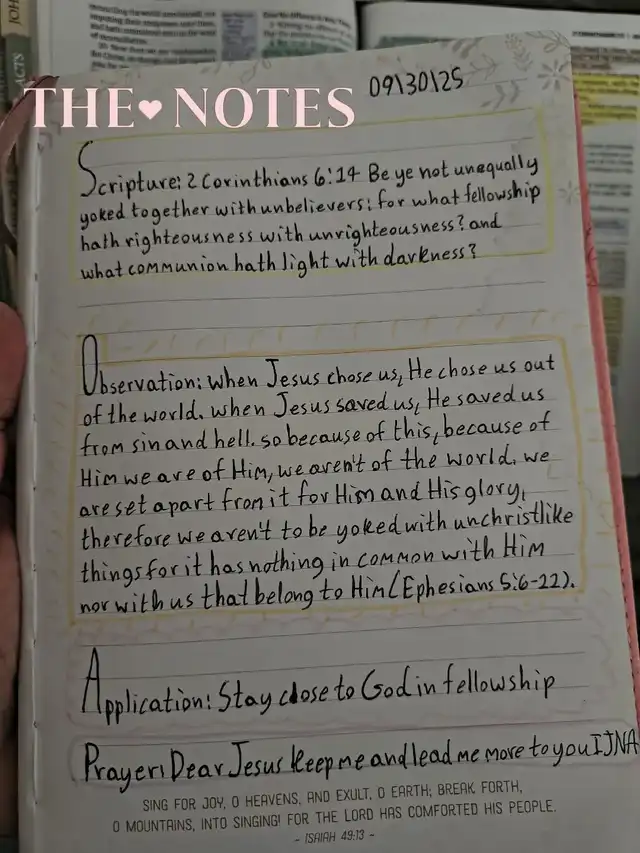 09\30\25
THE NOTES
Scripture: 2 Corinthians 6:14 Be ye not unequally
yoked together with unbelievers: for what fellowship
hath righteousness with unrighteousness? and
what communion hath light with darkness?
Observation: when Jesus chose us, He chose us out
of the world. when Jesus saved us, He saved us
from sin and hell. so because of this, because of
Him we are of Him, we aren't of the world. we
are set apart from it for Him and His glory,
therefore we aren't to be yoked with unchristlike
things for it has nothing in common with Him
nor with us that belong to Him (Ephesians 5:6-22).
Application: Stay close to God in fellowship
Prayer: Dear Jesus keep me and lead me more to you IJNA
SING FOR JOY, O HEAVENS, AND EXULT, O EARTH; BREAK FORTH,
O MOUNTAINS, INTO SINGING! FOR THE LORD HAS COMFORTED HIS PEOPLE.
- ISAIAH 49:13 -
ACTS